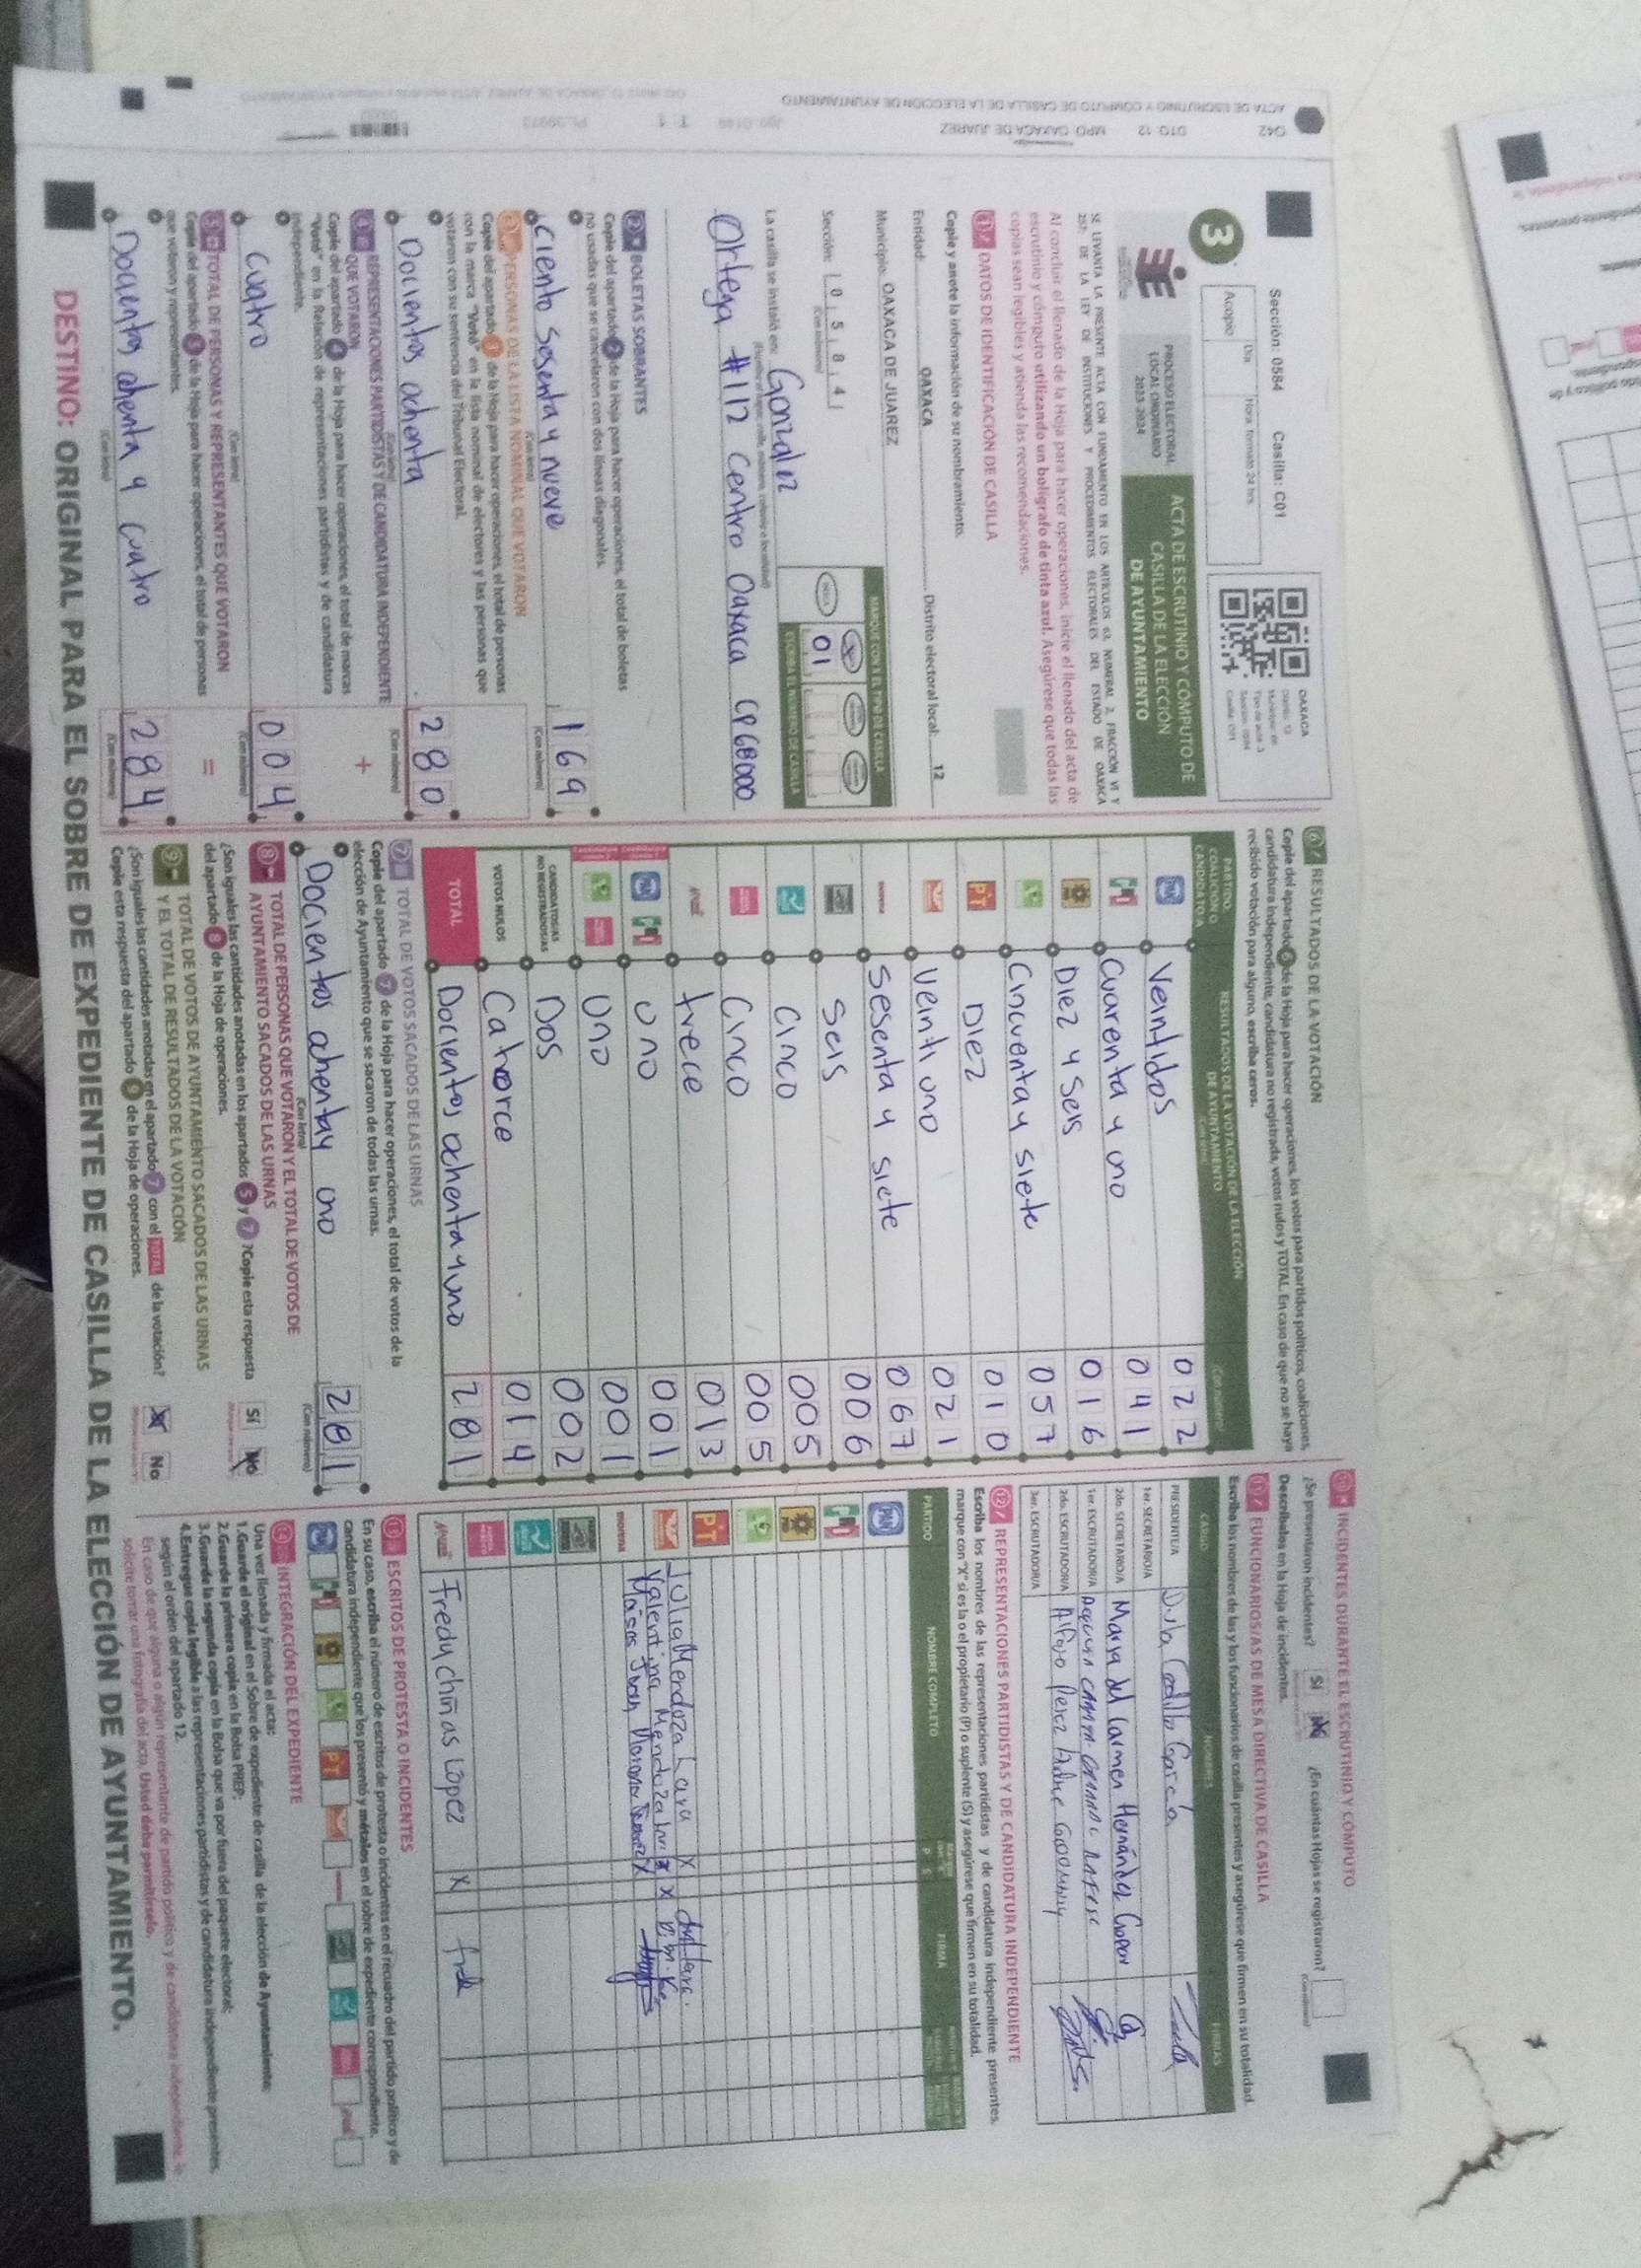 3
Sección: 0584 Casilla: C01
Acopio
Día
Hora: formato 24 hrs.
OAXACA
PROCESO ELECTORAL
LOCAL ORDINARIO
2023-2024
ACTA DE ESCRUTINIO Y CÓMPUTO DE
CASILLA DE LA ELECCIÓN
DE AYUNTAMIENTO
SE LEVANTA LA PRESENTE ACTA CON FUNDAMENTO EN LOS ARTÍCULOS 63, NUMERAL 2, FRACCIÓN VI Y
257; DE LA LEY DE INSTITUCIONES Y PROCEDIMIENTOS ELECTORALES DEL ESTADO DE OAXACA
Al concluir el llenado de la Hoja para hacer operaciones, inicie el llenado del acta de
escrutinio y cómputo utilizando un bolígrafo de tinta azul. Asegúrese que todas las
copias sean legibles y atienda las recomendaciones.
1 DATOS DE IDENTIFICACIÓN DE CASILLA
Copie y anote la información de su nombramiento.
Entidad: OAXACA Distrito electoral local: 12
Municipio: OAXACA DE JUAREZ
Sección: 0 5 8 4
(Con número)
MARQUE CON X EL TIPO DE CASILLA
01
ESCRIBA EL NÚMERO DE CASILLA
La casilla se instaló en: Gonzalez
Ortega #1112 Centro Oaxaca CP68000
2 BOLETAS SOBRANTES
Copie del apartado 2 de la Hoja para hacer operaciones, el total de boletas
no usadas que se cancelaron con dos líneas diagonales.
Ciento Sesenta y nueve 169
(Con letra) (Con número)
3 PERSONAS DE LA LISTA NOMINAL QUE VOTARON
Copie del apartado de la Hoja para hacer operaciones, el total de personas
con la marca "Votó" en la lista nominal de electores y las personas que
votaron con su sentencia del Tribunal Electoral.
Docientos ochenta 280
(Con letra) (Con número)
4 REPRESENTACIONES PARTIDISTAS Y DE CANDIDATURA INDEPENDIENTE
QUE VOTARON
+
Copie del apartado 4 de la Hoja para hacer operaciones, el total de marcas
"Votó" en la Relación de representaciones partidistas y de candidatura
independiente.
cuatro 004
(Con letra) (Con número)
5 TOTAL DE PERSONAS Y REPRESENTANTES QUE VOTARON
=
Copie del apartado 5 de la Hoja para hacer operaciones, el total de personas
que votaron y representantes.
Docientos ohenta y cuatro 284
(Con letra) (Con número)
6 RESULTADOS DE LA VOTACIÓN
Copie del apartado 6 de la Hoja para hacer operaciones, los votos para partidos políticos, coaliciones,
candidatura independiente, candidatura no registrada, votos nulos y TOTAL. En caso de que no se haya
recibido votación para alguno, escriba ceros.
PARTIDO, COALICIÓN O CANDIDATO/A
RESULTADOS DE LA VOTACIÓN DE LA ELECCIÓN
DE AYUNTAMIENTO
(Con letra) (Con número)
PAN Veintidos 022
PRI Cuarenta y uno 041
PRD Diez y Seis 016
Cincuenta y siete 057
PT Diez 010
Veinti uno 021
morena Sesenta y siete 067
Seis 006
Cinco 005
Cinco 005
trece 013
uno 001
uno 001
CANDIDATOS/AS
NO REGISTRADOS/AS Dos 002
VOTOS NULOS Catrorce 014
TOTAL Docientos ochenta y uno 281
7 TOTAL DE VOTOS SACADOS DE LAS URNAS
Copie del apartado 7 de la Hoja para hacer operaciones, el total de votos de la
elección de Ayuntamiento que se sacaron de todas las urnas.
Docientos ohentay uno 281
(Con letra) (Con número)
8 TOTAL DE PERSONAS QUE VOTARON Y EL TOTAL DE VOTOS DE
AYUNTAMIENTO SACADOS DE LAS URNAS
¿Son iguales las cantidades anotadas en los apartados 5 y 7? Copie esta respuesta
del apartado 8 de la Hoja de operaciones.
Sí No
9 TOTAL DE VOTOS DE AYUNTAMIENTO SACADOS DE LAS URNAS
Y EL TOTAL DE RESULTADOS DE LA VOTACIÓN
¿Son iguales las cantidades anotadas en el apartado 7 con el TOTAL de la votación?
Copie esta respuesta del apartado 9 de la Hoja de operaciones.
Sí No
10 INCIDENTES DURANTE EL ESCRUTINIO Y CÓMPUTO
¿Se presentaron incidentes? Sí No ¿En cuántas Hojas se registraron?
Descríbalos en la Hoja de incidentes.
11 FUNCIONARIOS/AS DE MESA DIRECTIVA DE CASILLA
Escriba los nombres de las y los funcionarios de casilla presentes y asegúrese que firmen en su totalidad.
CARGO NOMBRES FIRMAS
PRESIDENTE/A
1er. SECRETARIO/A
2do. SECRETARIO/A Marya del Carmen Hernández
1er. ESCRUTADOR/A
2do. ESCRUTADOR/A
3er. ESCRUTADOR/A
12 REPRESENTACIONES PARTIDISTAS Y DE CANDIDATURA INDEPENDIENTE
Escriba los nombres de las representaciones partidistas y de candidatura independiente presentes,
marque con "X" si es la o el propietario (P) o suplente (S) y asegúrese que firmen en su totalidad.
PARTIDO NOMBRE COMPLETO P S FIRMA
PAN
PRI
PRD
PT Julia Mendoza Lara X
Valentina Mendoza X
morena X
Fredy chiñas López X
13 ESCRITOS DE PROTESTA O INCIDENTES
En su caso, escriba el número de escritos de protesta o incidentes en el recuadro del partido político y de
candidatura independiente que los presentó y métalos en el sobre de expediente correspondiente.
14 INTEGRACIÓN DEL EXPEDIENTE
Una vez llenada y firmada el acta:
1.Guarde el original en el Sobre de expediente de casilla de la elección de Ayuntamiento;
2.Guarde la primera copia en la Bolsa PREP;
3.Guarde la segunda copia en la Bolsa que va por fuera del paquete electoral;
4.Entregue copia legible a las representaciones partidistas y de candidatura independiente presentes,
según el orden del apartado 12.
En caso de que alguna o algún representante de partido político y de candidatura independiente, le
solicite tomar una fotografía del acta, Usted debe permitírselo.
DESTINO: ORIGINAL PARA EL SOBRE DE EXPEDIENTE DE CASILLA DE LA ELECCIÓN DE AYUNTAMIENTO.
042 DTO. 12 MPO. OAXACA DE JUAREZ
ACTA DE ESCRUTINIO Y CÓMPUTO DE CASILLA DE LA ELECCIÓN DE AYUNTAMIENTO